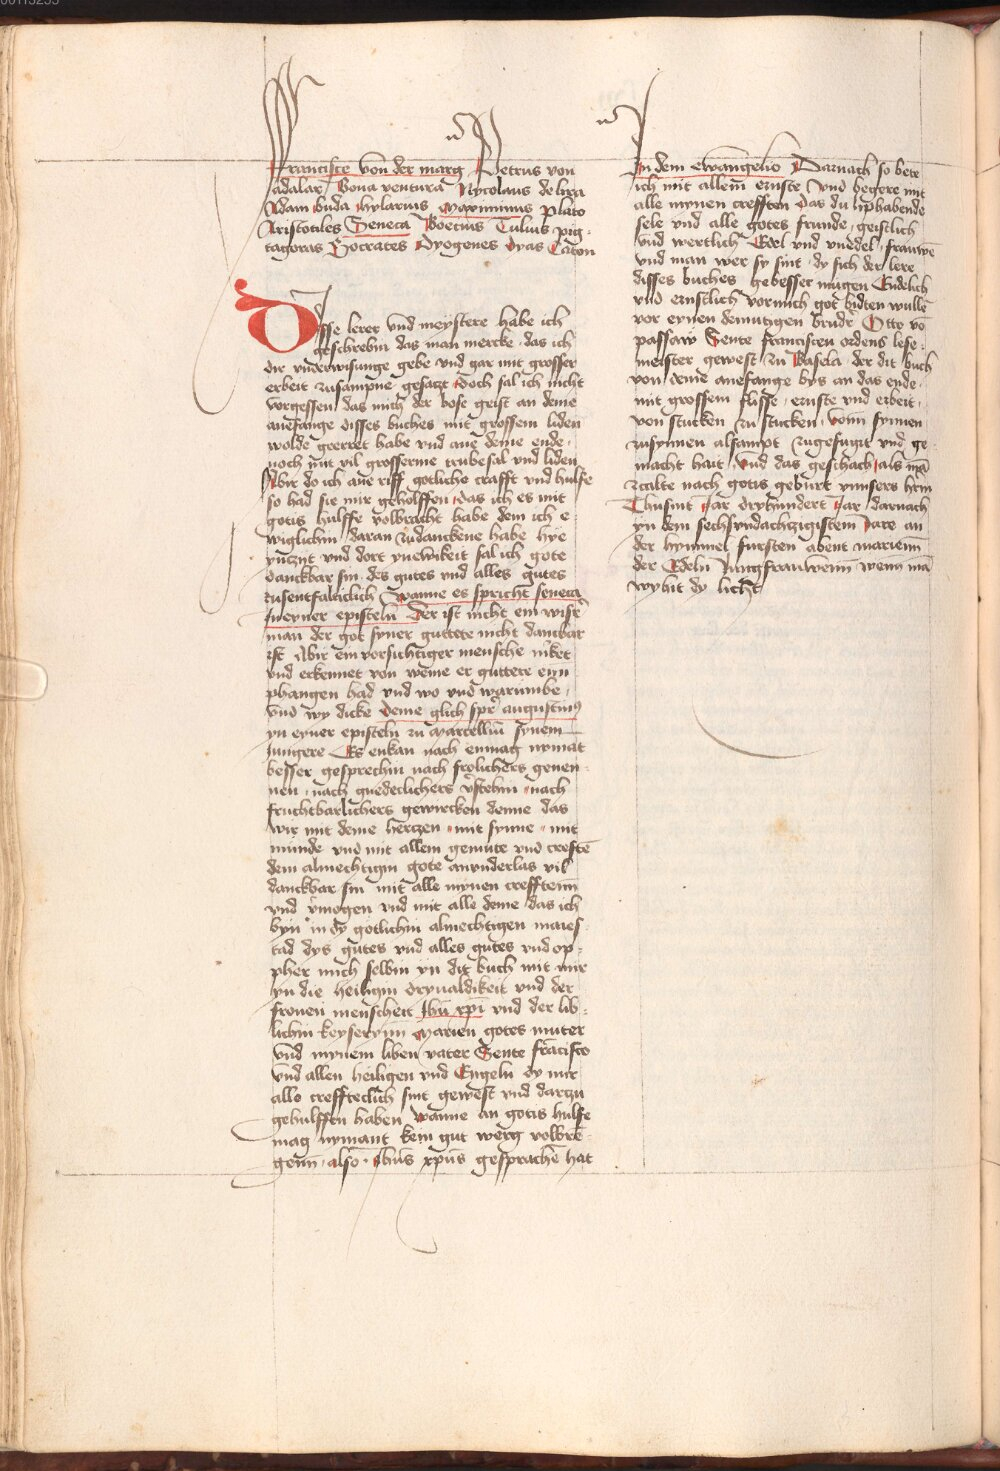 Francisce von der marg Petrus von
adalar Bona ventura Nycolaus de lira
Adam Buda hylarius Maximinus Plato
Aristotiles Seneca Boecius Tulius pig-
tagoras Socrates Dyogenes Dyas Caton
Disse lerer vnd meystere habe ich
geschrebin das man mercke das ich
dir vnderwisunge gebe vnd gar mit grosser
erbeit zusampne gesatzt Doch sal ich nicht
vorgessen das mich der bose geist an deme
anefange disses buches mit grossem liden
wolde geerret habe vnd ane deme ende
noch mit vil grosserme trubesal vnd liden
Abir do ich ane riff gotliche crafft vnd hulfe
so had sie mir geholffen das ich es mit
gotis hulffe volbracht habe dem ich e
wiglichin daran zudanckene habe hye
ynzyt vnd dort ynewikeit sal ich gote
danckbar sin des gutes vnd alles gutes
tusentfaldiclich Wanne es spricht seneca
In eyner episteln Der ist nicht ein wiser
man der got syner guttete nicht danckbar
ist Abir ein vorsichtiger mensche niket
vnd erkennet von weme er guttete ein
phangen had vnd wo vnd warumbe
vnd wy dicke deme glich spr augustinus
yn eyner episteln zu Marcellin synem
Jungere Es enkan nach enmag nymat
besser gesprechin nach frolichers genen
nen nach gnedeclichers vstehin nach
fruchtbarlichers gewircken denne das
wir mit deme hertzen mit synne mit
munde vnd mit allem gemute vnd creftē
dem almechtigin gote anvnderlas vil
danckbar sin mit alle mynen creffteun
vnd vmogen vnd mit alle deme das ich
byn in dy gotlichin almechtigen maies
tad dys gutes vnd alles gutes vnd op-
pher mich selbin yn dit buch mit mir
yn die heiligin dryualdikeit vnd der
fronen menscheit Ihū xpī vnd der lib-
lichin keyserynn Marien gotes muter
vnd mynem liben vater Sente francisco
vnd allen heiligen vnd Engeln dy mir
alle creffteclich sint gewest vnd darzu
gehulffen haben wanne an gotis hulfe
mag nymant kein gut werg volbre-
genn also Ihūs xpūs gesprache hat
In dem ewangelio Darnach so bete
ich mit allem ernste vnd begere mit
alle mynen crefften das du liphabende
sele vnd alle gotes frunde geistlich
vnd wertlich Edel vnd vnedel frauwē
vnd man wer sy sint dy sich der lere
disses buches gebesser mugen Endelich
vnd ernstlich vormich got bidten wullē
vor eynen demutigen bruder Otto vō
passaw Sente franciscen ordens lese-
meister gewest zu Basela der dit buch
von deme anefange bys an das ende
mit grossem flisse ernste vnd erbeit
von stucken zu stucken vom synnen
zusynnen alsampt zugefugit vnd ge
macht hait Vnd das geschach als mā
zcalte nach gotis geburt vnnsers hern
Thusint Jar dryhundert Jar darnach
yn dem sechsvndachzigistem Jare an
der hymmel fursten abent marienn
der Edeln Jungfrauwenn wenn mā
wyhit dy licht